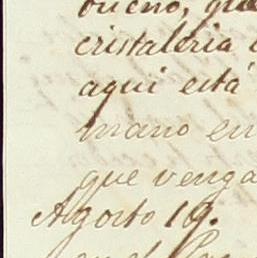 bueno, que
cristaleria
aqui está
mano en
que venga
Agosto 19.
en el